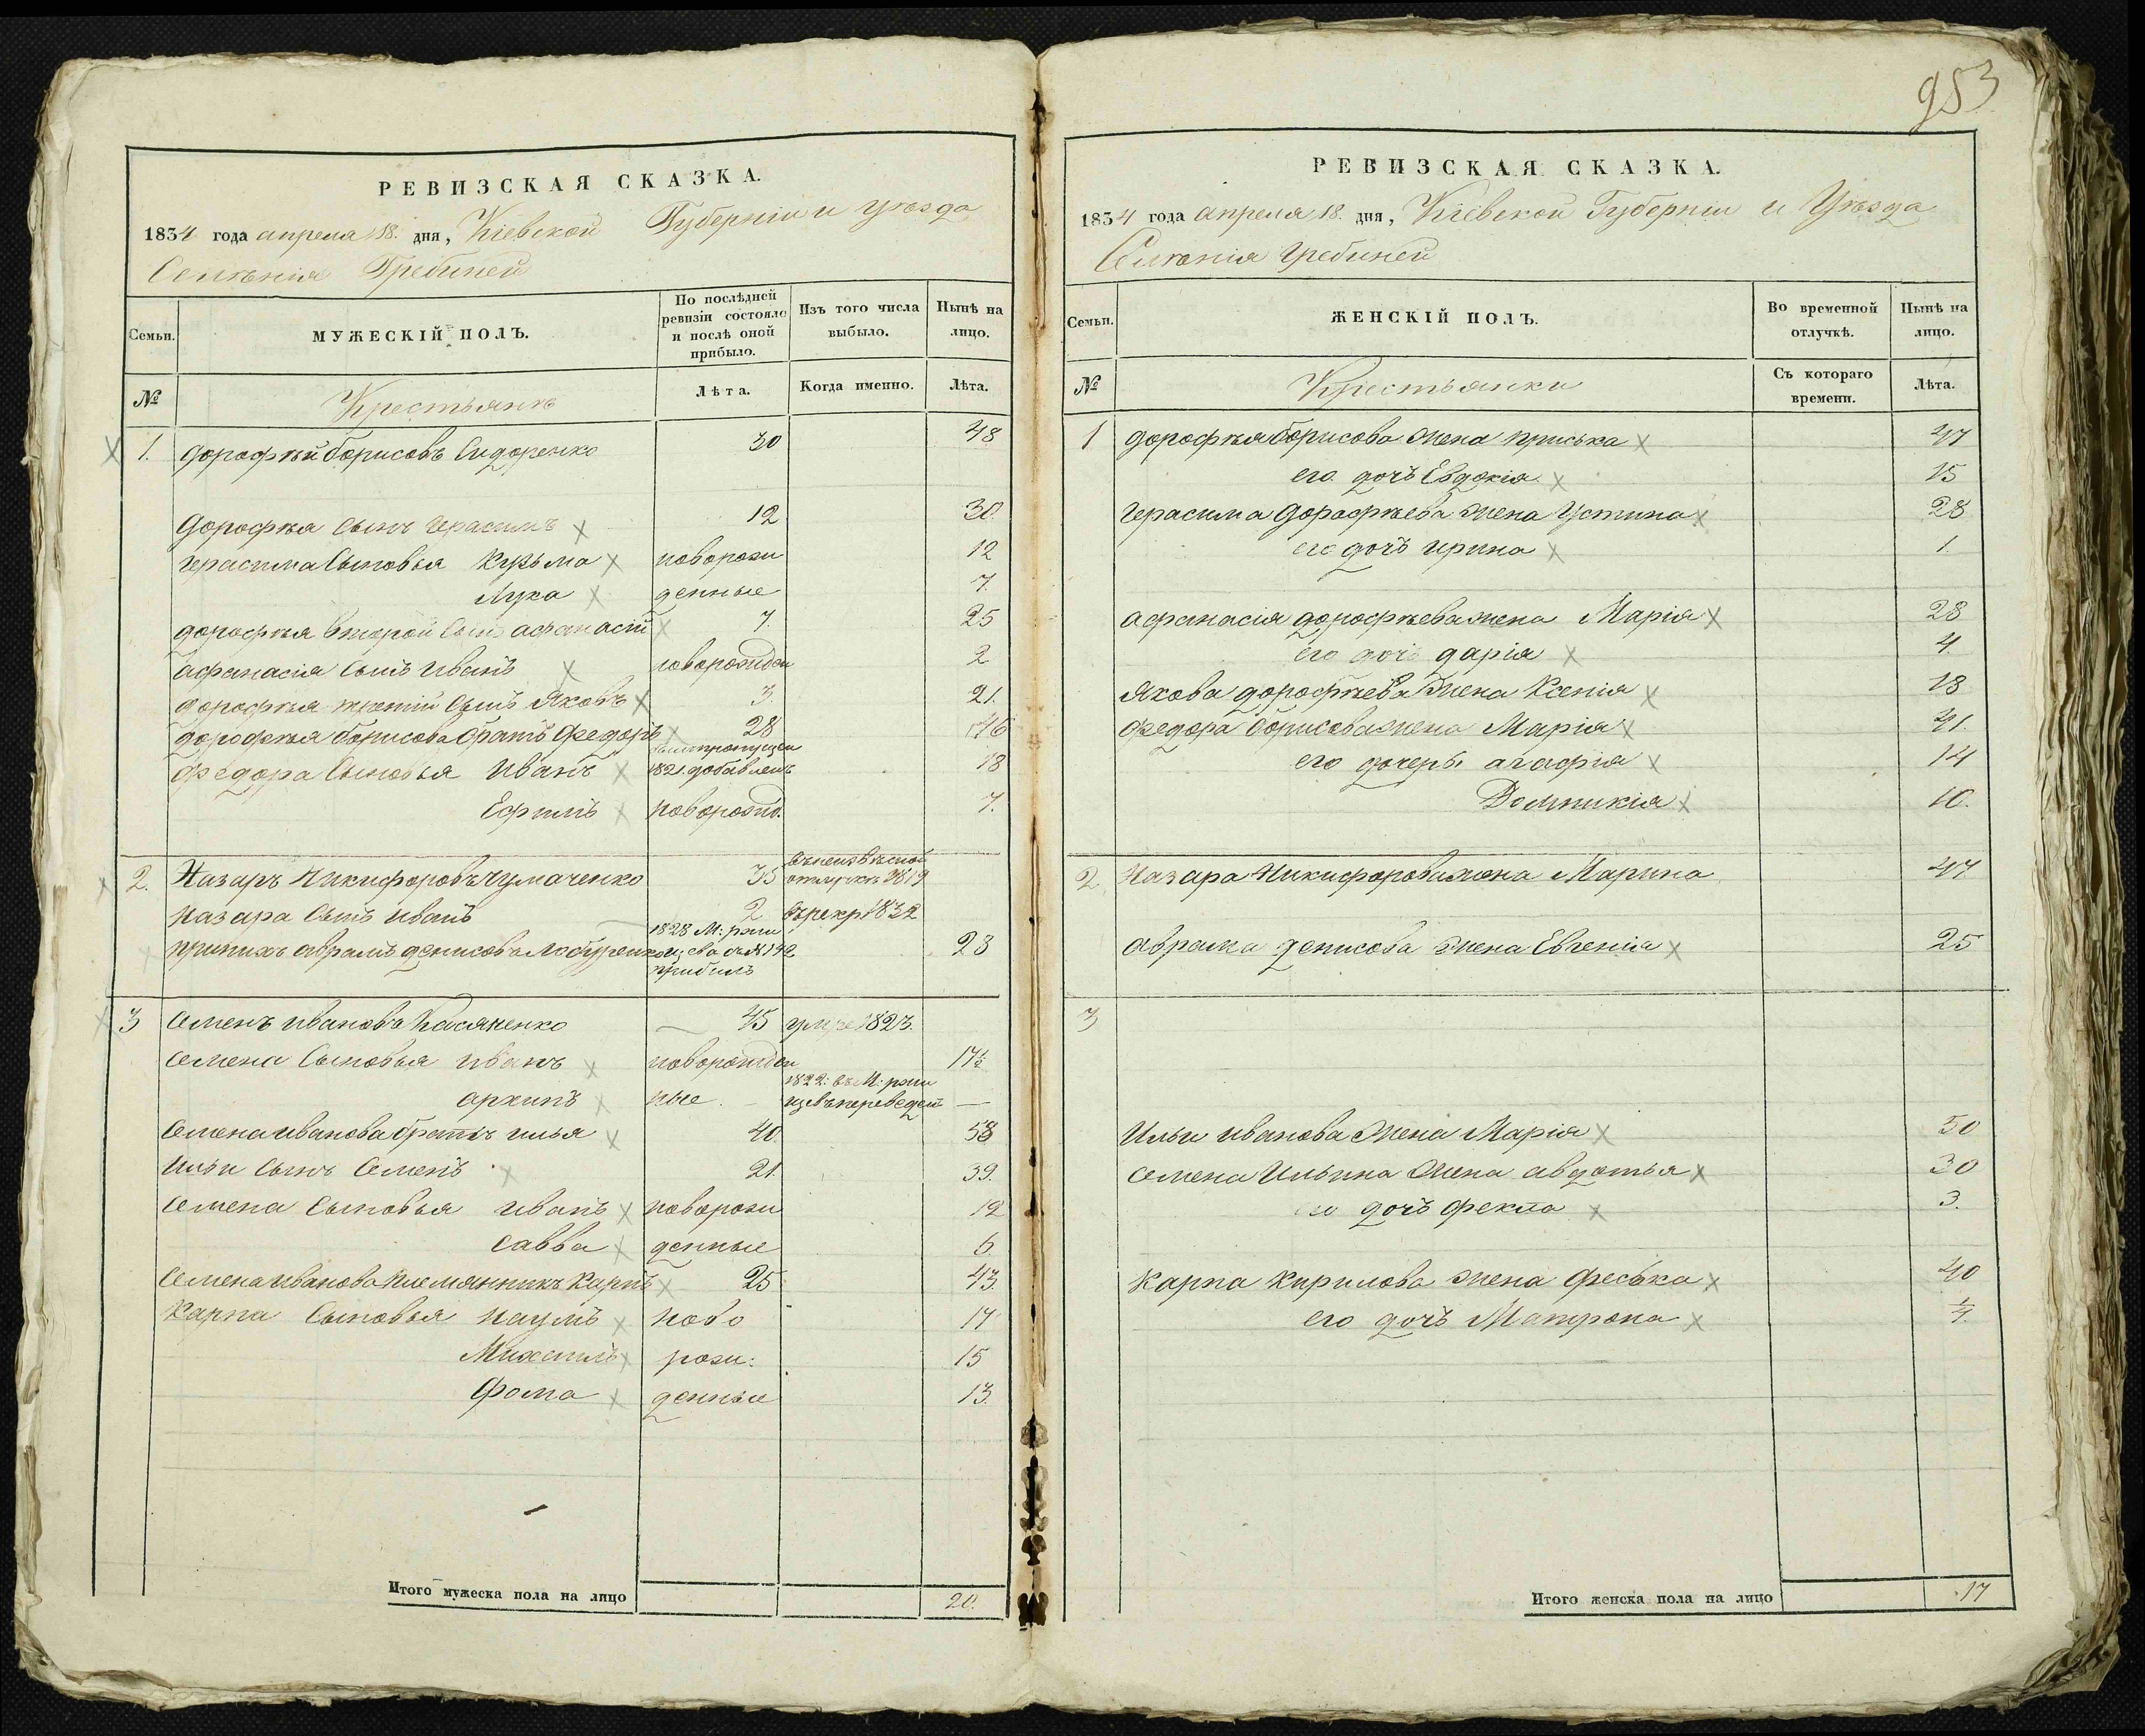 953
РЕВИЗСКАЯ СКАЗКА.
1834 года апреля 18. дня, Кіевской Губерніи и уѣзда
Селѣнія Гребиней
Семьи.
МУЖЕСКІЙ ПОЛЪ.
По послѣдней ревизіи состояло и послѣ оной прибыло.
Изъ того числа выбыло.
Нынѣ на лицо.
№
Крестьянъ
Лѣта.
Когда именно.
Лѣта.
1. Дорофѣй борисовъ Сидоренко 30 48
Дорофѣя Сынъ Герасимъ 12 30.
Герасима Сыновья Кузьмановорож 12
Лука денные 7.
дорофѣя второй Сынъ афанасій 7. 25
афанасія Сынъ Иванъ новорожден 2
дорофѣя третій Сынъ Яковъ 3. 21.
дорофѣя борисова братъ Федоръ 28 46
Федора Сыновья Иванъ 1821. добавленъ 18
Ефимъ новорожд. 7.
2. Назаръ Никифоровъ Чумаченко 35 въ неизвѣстной отлучкѣ 1819
Назара Сынъ Иванъ 2 въ рекр 1832
1828 М: ржи
примихъ аврамъ денисовъ 28
прибылъ
3 Семенъ Ивановъ Касяненко 45 умре 1823.
Семена Сыновья Иванъ новорожден 17½
1822: въ М: ржи
архипъ ные. переведен —
Семена Иванова братъ илья 40. 58
Ильи Сынъ Семенъ 21. 39.
Семена Сыновья Иванъ новорож 12
Савва денные 6.
Семена Иванова племянникъ Карпъ 25 43.
Карпа Сыновья Наумъ ново 17
Михаилъ рож: 15
Фома денные 13.
Итого мужеска пола на лицо 20.
РЕВИЗСКАЯ СКАЗКА.
1834 года апреля 18. дня, Кіевской Губерніи и Уѣзда
Селѣнія Гребиней
Семьи.
ЖЕНСКІЙ ПОЛЪ.
Во временной отлучкѣ.
Нынѣ на лицо.
№
Крестьянки
Съ котораго времени.
Лѣта.
1 Дорофѣя борисова жена приська 47
его дочь Евдокія 15
Герасима Дорофѣева жена Устина 28
его дочь ирина 1.
афанасія дорофѣева жена Марія 28
его дочь дарія 4.
Якова дорофѣева жена Ксенія 18
Федора борисова жена Марія 41.
его дочеры агафія 14
Домникія 10.
2 Назара Никифорова жена Марина 47
аврама денисова жена Евгенія 25
3
Ильи иванова жена Марія 50
Семена Ильина жена авдотья 30
его дочь Фекла 3.
Карпа Кирилова жена Феська 40
его дочь Матрона
Итого женска пола на лицо 17